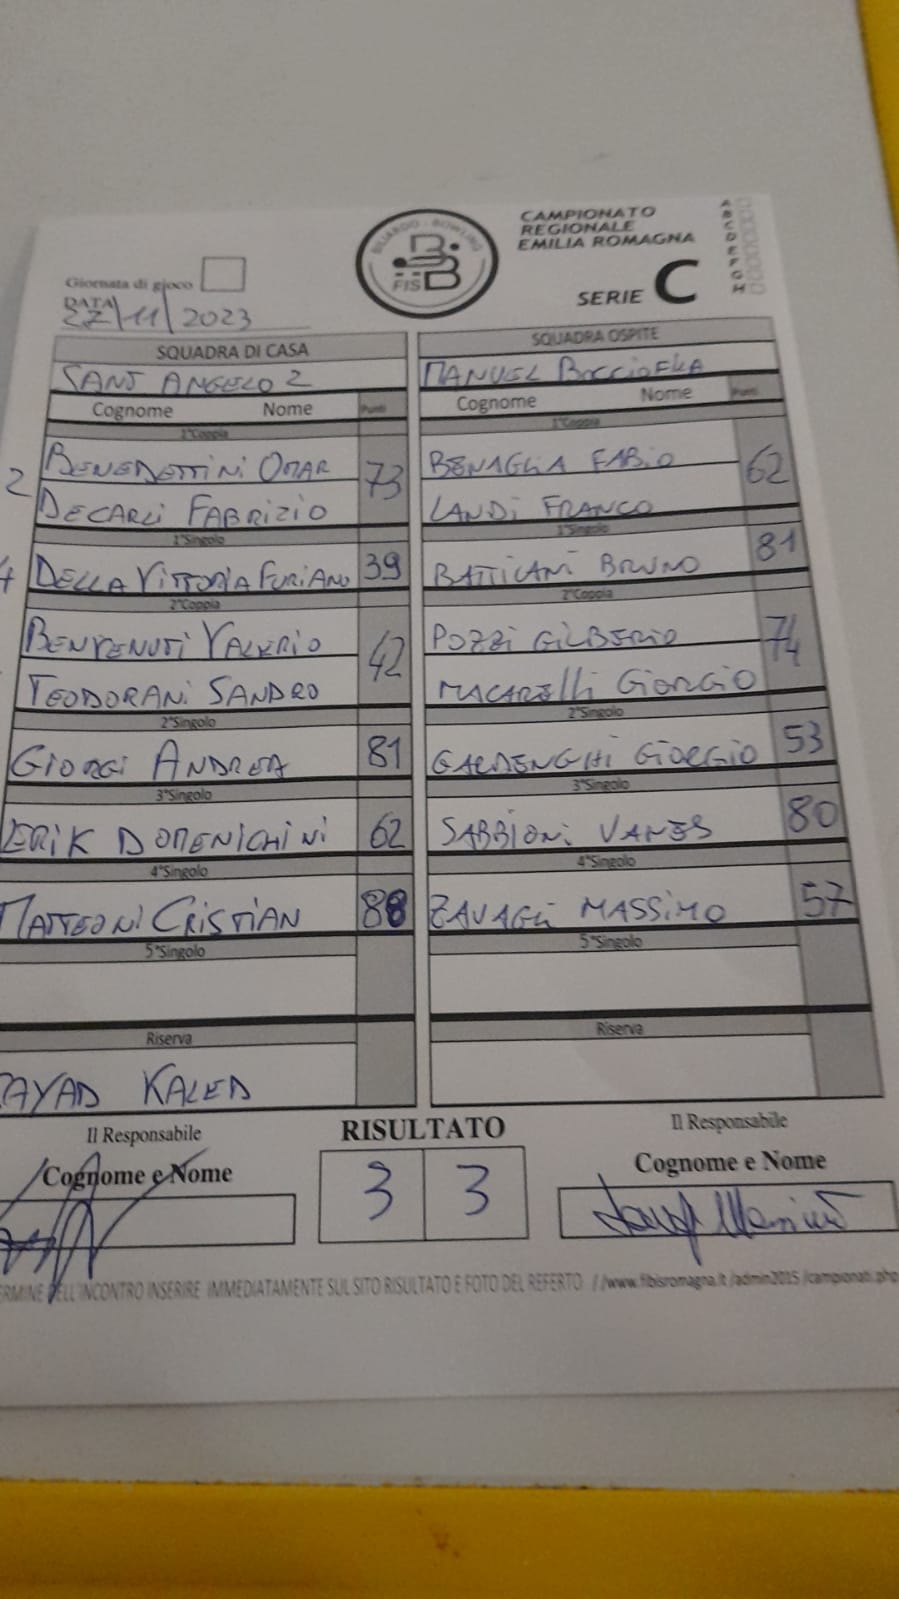 CAMPIONATO
REGIONALE
EMILIA ROMAGNA
SERIE C
A B C D E F G H
BILIARDO - BOWLING
FISBB
Giornata di gioco
DATA
27/11/2023
SQUADRA DI CASA SQUADRA OSPITE
SANT ANGELO 2 MANUEL BOCCIOFILA
Cognome Nome Punti Cognome Nome Punti
1°Coppia 1°Coppia
2 BENEDETTINI OMAR 73 BENAGLIA FABIO 62
DECARLI FABRIZIO LANDI FRANCO
1°Singolo 1°Singolo
4 DELLA VITTORIA FURIANO 39 BATTICANI BRUNO 81
2°Coppia 2°Coppia
BENVENUTI VALERIO 42 POZZI GILBERTO 74
TEODORANI SANDRO MACARELLI GIORGIO
2°Singolo 2°Singolo
GIORGI ANDREA 81 GARDENGHI GIORGIO 53
3°Singolo 3°Singolo
ERIK DOMENICHINI 62 SABBIONI VANES 80
4°Singolo 4°Singolo
MATTEONI CRISTIAN 88 ZAVAGLI MASSIMO 57
5°Singolo 5°Singolo
Riserva Riserva
AYAD KALED
Il Responsabile RISULTATO Il Responsabile
Cognome e Nome 3 3 Cognome e Nome
ERMINE DELL'INCONTRO INSERIRE IMMEDIATAMENTE SUL SITO RISULTATO E FOTO DEL REFERTO //www.fibisromagna.it /admin2015 /campionati.php